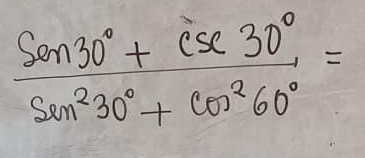 Sen30° + csc 30° =
Sen²30° + Cos²60°